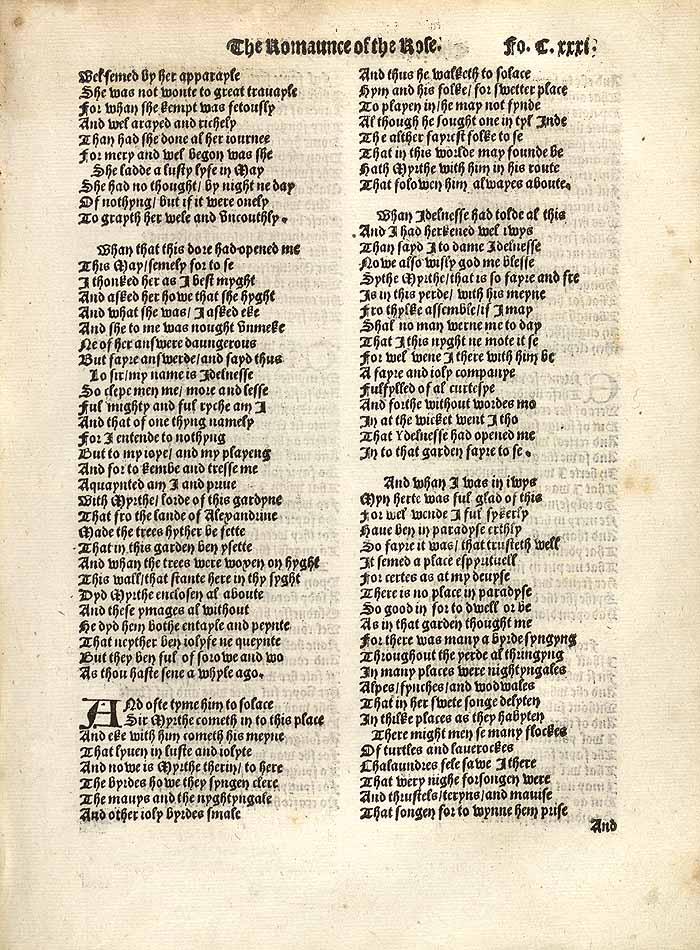 The Romaunce of the Rose. Fo. C. xxxi.
Wel semed by her apparayle
She was not wonte to great trauayle
For whan she kempt was fetously
And wel arayed and richely
Than had she done al her iournee
For mery and wel begon was she
She ladde a lusty lyfe in May
She had no thought/ by night ne day
Of nothyng/ but if it were onely
To grayth her wele and vncouthly.
Whan that this dore had opened me
This May/semely for to se
I thonked her as I best myght
And asked her howe that she hyght
And what she was/ I asked eke
And she to me was nought vnmeke
Ne of her answere daungerous
But fayre answerde/and sayd thus
Lo sir/my name is Idelnesse
So clepe men me/ more and lesse
Ful mighty and ful ryche am I
And that of one thyng namely
For I entende to nothyng
But to my ioye/ and my playeng
And for to kembe and tresse me
Aquaynted am I and priue
With Myrthe/ lorde of this gardyne
That fro the lande of Alexandrine
Made the trees hyther be fette
That in this garden ben ysette
And whan the trees were woxen on hyght
This wall/that stante here in thy syght
Dyd Myrthe enclosen al aboute
And these ymages al without
He dyd hem bothe entayle and peynte
That neyther ben iolyfe ne queynte
But they ben ful of sorowe and wo
As thou haste sene a whyle ago.
ANd ofte tyme him to solace
Sir Myrthe cometh in to this place
And eke with him cometh his meyne
That lyuen in luste and iolyte
And nowe is Myrthe therin/ to here
The byrdes howe they syngen clere
The mauys and the nyghtyngale
And other ioly byrdes smale
And thus he walketh to solace
Hym and his folke/ for swetter place
To playen in/he may not fynde
Al though he sought one in tyl Inde
The alther fayrest folke to se
That in this worlde may founde be
Hath Myrthe with him in his route
That folowen him alwayes aboute.
Whan Idelnesse had tolde al this
And I had herkened wel iwys
Than sayd I to dame Idelnesse
Nowe also wisly god me blesse
Sythe Myrthe/that is so fayre and fre
Is in this yerde/ with his meyne
Fro thylke assemble/if I may
Shal no man werne me to day
That I this nyght ne mote it se
For wel wene I there with him be
A fayre and ioly companye
Fulfylled of al curtesye
And forthe without wordes mo
In at the wicket went I tho
That Ydelnesse had opened me
In to that garden fayre to se.
And whan I was in iwys
Myn herte was ful glad of this
For wel wende I ful sykerly
Haue ben in paradyse erthly
So fayre it was/ that trusteth well
It semed a place espyrituell
For certes as at my deuyse
There is no place in paradyse
So good in for to dwell or be
As in that garden thought me
For there was many a byrde syngyng
Throughout the yerde al thringyng
In many places were nightyngales
Alpes/fynches/and wodwales
That in her swete songe delyten
In thilke places as they habyten
There might men se many flockes
Of turtles and lauerockes
Chalaundres fele sawe I there
That wery nighe forsongen were
And thrustels/teryns/and mauise
That songen for to wynne hem prise
And